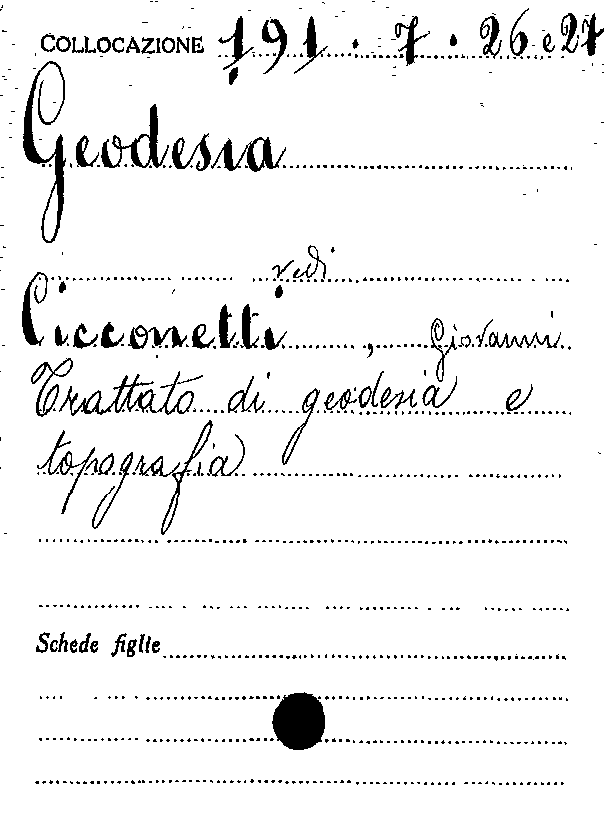 COLLOCAZIONE 191.7.26 e 27
Geodesia
vedi
Cicconetti, Giovanni
Trattato di geodesia e
topografia
Schede figlie